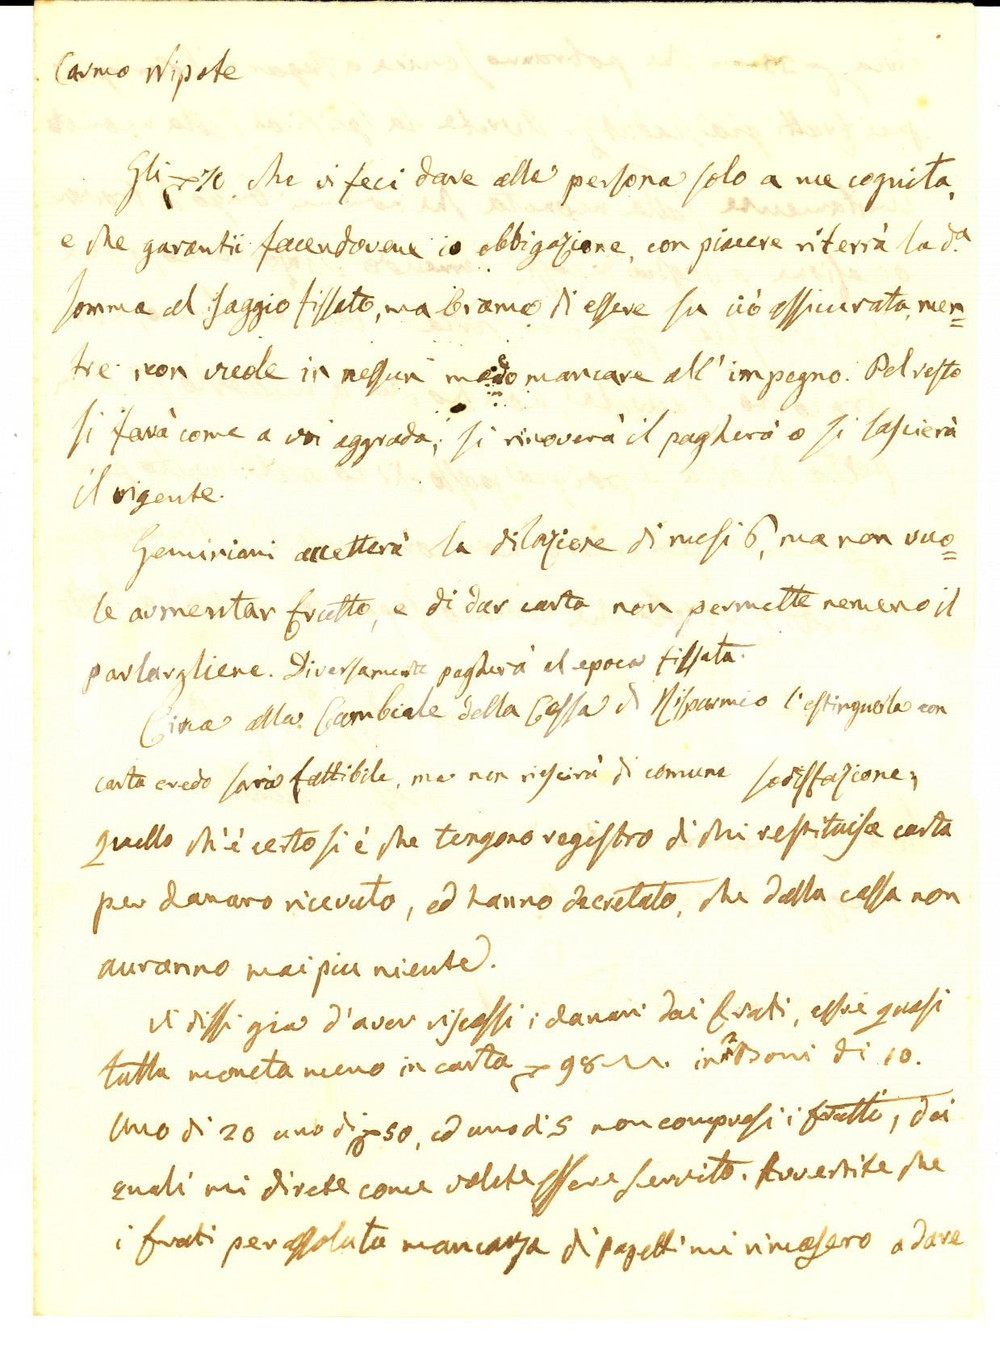 Carmo Nipote
Gli 70 che vi feci dare alla persona solo a me cognita,
e che garantii facendovene io obbligazione, con piacere riterrà la d.a
somma al saggio fissato, ma brama di essere su ciò assicurata, men=
tre non vuole in nessun modo mancare all'impegno. Pel resto
si farà come a voi aggrada; si rinoverà il pagherà o si lascierà
il vigente.
Geminiani accetterà la dilazione di mesi 6, ma non vuo=
le aumentar frutto, e di dar carta non permette nemeno il
parlargliene. Diversamente pagherà al epoca fissata.
Circa alla Cambiale della Cassa di Risparmio l'estinguerla con
carta credo sarà fattibile, ma non riescirà di comune sodisfazione;
Quello ch'è certo si è che tengono registro di chi restituisce carta
per danaro ricevuto, ed hanno decretato, che dalla cassa non
auranno mai piu niente.
Vi dissi già d'aver riscossi i danari dai frati, essi è quasi
tutta moneta meno in carta 98 in Boni di 10.
Uno di 20 uno di 50, ed uno di 5 non compresi i frutti, dei
quali mi direte come volete essere servito. Avvertite che
i frati per assoluta mancanza di pagetti mi rimasero a dare